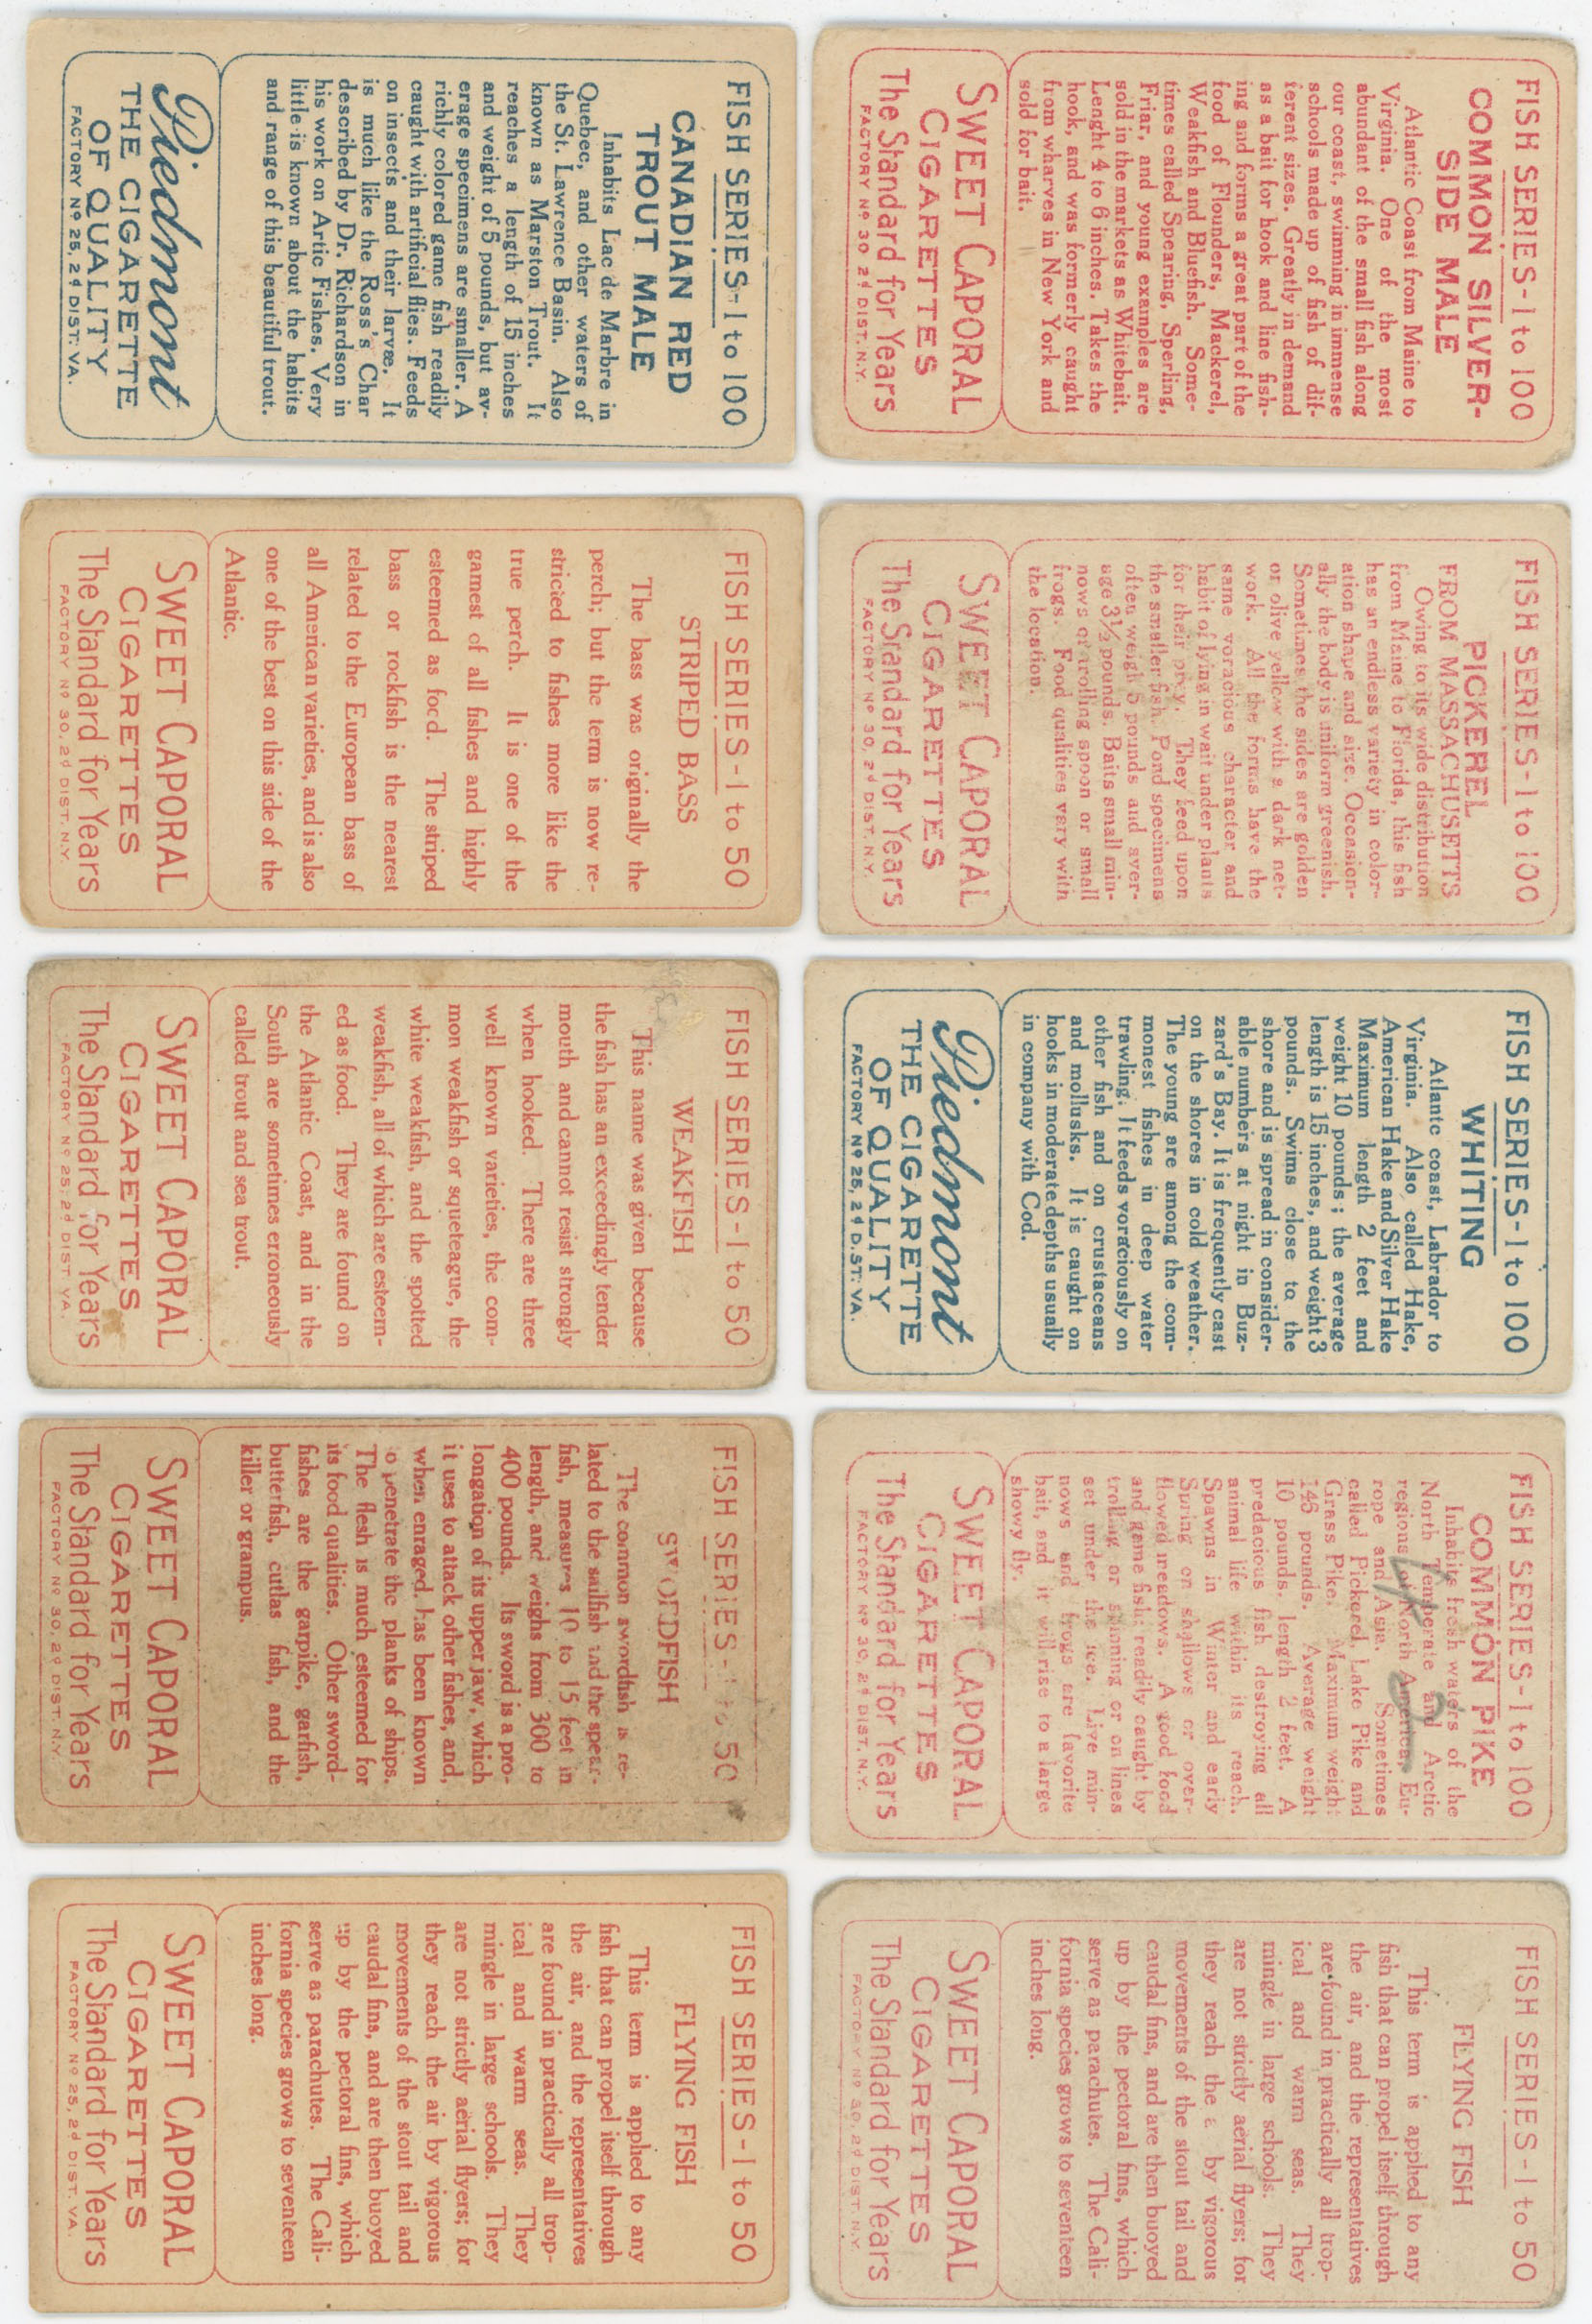 FISH SERIES-1 to 100
CANADIAN RED
TROUT MALE
Inhabits Lac de Marbre in
Quebec, and other waters of
the St. Lawrence Basin. Also
known as Marston Trout. It
reaches a length of 15 inches
and weight of 5 pounds, but av-
erage specimens are smaller. A
richly colored game fish readily
caught with artificial flies. Feeds
on insects and their larvæ. It
is much like the Ross's Char
described by Dr. Richardson in
his work on Artic Fishes. Very
little is known about the habits
and range of this beautiful trout.
Piedmont
THE CIGARETTE
OF QUALITY
FACTORY Nº 25, 2d DIST. VA.
FISH SERIES-1 to 100
COMMON SILVER-
SIDE MALE
Atlantic Coast from Maine to
Virginia. One of the most
abundant of the small fish along
our coast, swimming in immense
schools made up of fish of dif-
ferent sizes. Greatly in demand
as a bait for hook and line fish-
ing and forms a great part of the
food of Flounders, Mackerel,
Weakfish and Bluefish. Some-
times called Spearing, Sperling,
Friar, and young examples are
sold in the markets as Whitebait.
Lenght 4 to 6 inches. Takes the
hook, and was formerly caught
from wharves in New York and
sold for bait.
SWEET CAPORAL
CIGARETTES
The Standard for Years
FACTORY Nº 30 2d DIST. N.Y.
FISH SERIES-1 to 50
STRIPED BASS
The bass was originally the
perch; but the term is now re-
stricted to fishes more like the
true perch. It is one of the
gamest of all fishes and highly
esteemed as food. The striped
bass or rockfish is the nearest
related to the European bass of
all American varieties, and is also
one of the best on this side of the
Atlantic.
SWEET CAPORAL
CIGARETTES
The Standard for Years
FACTORY Nº 30, 2d DIST. N.Y.
FISH SERIES-1 to 100
PICKEREL
FROM MASSACHUSETTS
Owing to its wide distribution
from Maine to Florida, this fish
has an endless variety in color-
ation shape and size. Occasion-
ally the body is uniform greenish.
Sometimes the sides are golden
or olive yellow with a dark net-
work. All the forms have the
same voracious character and
habit of lying in wait under plants
for their prey. They feed upon
the smaller fish. Pond specimens
often weigh 5 pounds and aver-
age 3½ pounds. Baits small min-
nows or trolling spoon or small
frogs. Food qualities vary with
the location.
SWEET CAPORAL
CIGARETTES
The Standard for Years
FACTORY Nº 30, 2d DIST. N.Y.
FISH SERIES-1 to 50
WEAKFISH
This name was given because
the fish has an exceedingly tender
mouth and cannot resist strongly
when hooked. There are three
well known varieties, the com-
mon weakfish or squeteague, the
white weakfish, and the spotted
weakfish, all of which are esteem-
ed as food. They are found on
the Atlantic Coast, and in the
South are sometimes erroneously
called trout and sea trout.
SWEET CAPORAL
CIGARETTES
The Standard for Years
FACTORY Nº 25, 2d DIST. VA.
FISH SERIES-1 to 100
WHITING
Atlantic coast, Labrador to
Virginia. Also called Hake,
American Hake and Silver Hake
Maximum length 2 feet and
weight 10 pounds; the average
length is 15 inches, and weight 3
pounds. Swims close to the
shore and is spread in consider-
able numbers at night in Buz-
zard's Bay. It is frequently cast
on the shores in cold weather.
The young are among the com-
monest fishes in deep water
trawling. It feeds voraciously on
other fish and on crustaceans
and mollusks. It is caught on
hooks in moderate depths usually
in company with Cod.
Piedmont
THE CIGARETTE
OF QUALITY
FACTORY Nº 25, 2d D.ST. VA.
FISH SERIES- 50
SWORDFISH
The common swordfish is re-
lated to the sailfish and the spear-
fish, measures 10 to 15 feet in
length, and weighs from 300 to
400 pounds. Its sword is a pro-
longation of its upper jaw, which
it uses to attack other fishes, and,
when enraged, has been known
o penetrate the planks of ships.
The flesh is much esteemed for
its food qualities. Other sword-
fishes are the garpike, garfish,
butterfish, cutlas fish, and the
killer or grampus.
SWEET CAPORAL
CIGARETTES
The Standard for Years
FACTORY Nº 30, 2d DIST. N.Y.
FISH SERIES-1 to 100
COMMON PIKE
Inhabits fresh waters of the
North Temperate and Arctic
regions of North America, Eu-
rope and Asia. Sometimes
called Pickerel, Lake Pike and
Grass Pike. Maximum weight
145 pounds. Average weight
10 pounds, length 2 feet. A
predacious fish destroying all
animal life within its reach.
Spawns in Winter and early
Spring on shallows or over-
flowed meadows. A good food
and game fish; readily caught by
trolling or spinning or on lines
set under the ice. Live min-
nows and frogs are favorite
bait, and it will rise to a large
showy fly.
SWEET CAPORAL
CIGARETTES
The Standard for Years
FACTORY Nº 30, 2d DIST. N.Y.
FISH SERIES-1 to 50
FLYING FISH
This term is applied to any
fish that can propel itself through
the air, and the representatives
are found in practically all trop-
ical and warm seas. They
mingle in large schools. They
are not strictly aërial flyers; for
they reach the air by vigorous
movements of the stout tail and
caudal fins, and are then buoyed
up by the pectoral fins, which
serve as parachutes. The Cali-
fornia species grows to seventeen
inches long.
SWEET CAPORAL
CIGARETTES
The Standard for Years
FACTORY Nº 25, 2d DIST. VA.
FISH SERIES-1 to 50
FLYING FISH
This term is applied to any
fish that can propel itself through
the air, and the representatives
are found in practically all trop-
ical and warm seas. They
mingle in large schools. They
are not strictly aërial flyers; for
they reach the a by vigorous
movements of the stout tail and
caudal fins, and are then buoyed
up by the pectoral fins, which
serve as parachutes. The Cali-
fornia species grows to seventeen
inches long.
SWEET CAPORAL
CIGARETTES
The Standard for Years
FACTORY Nº 30, 2d DIST. N.Y.